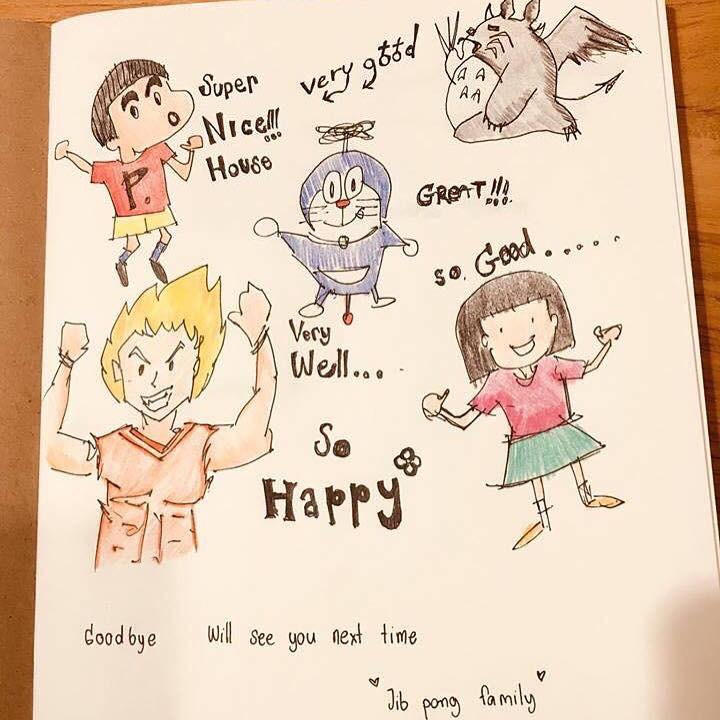 Super
Nice!!!
House
very good
P.
GREAT!!!
so. Good.....
Very
Well...
So
Happy
Goodbye Will see you next time
"Jib pong family"